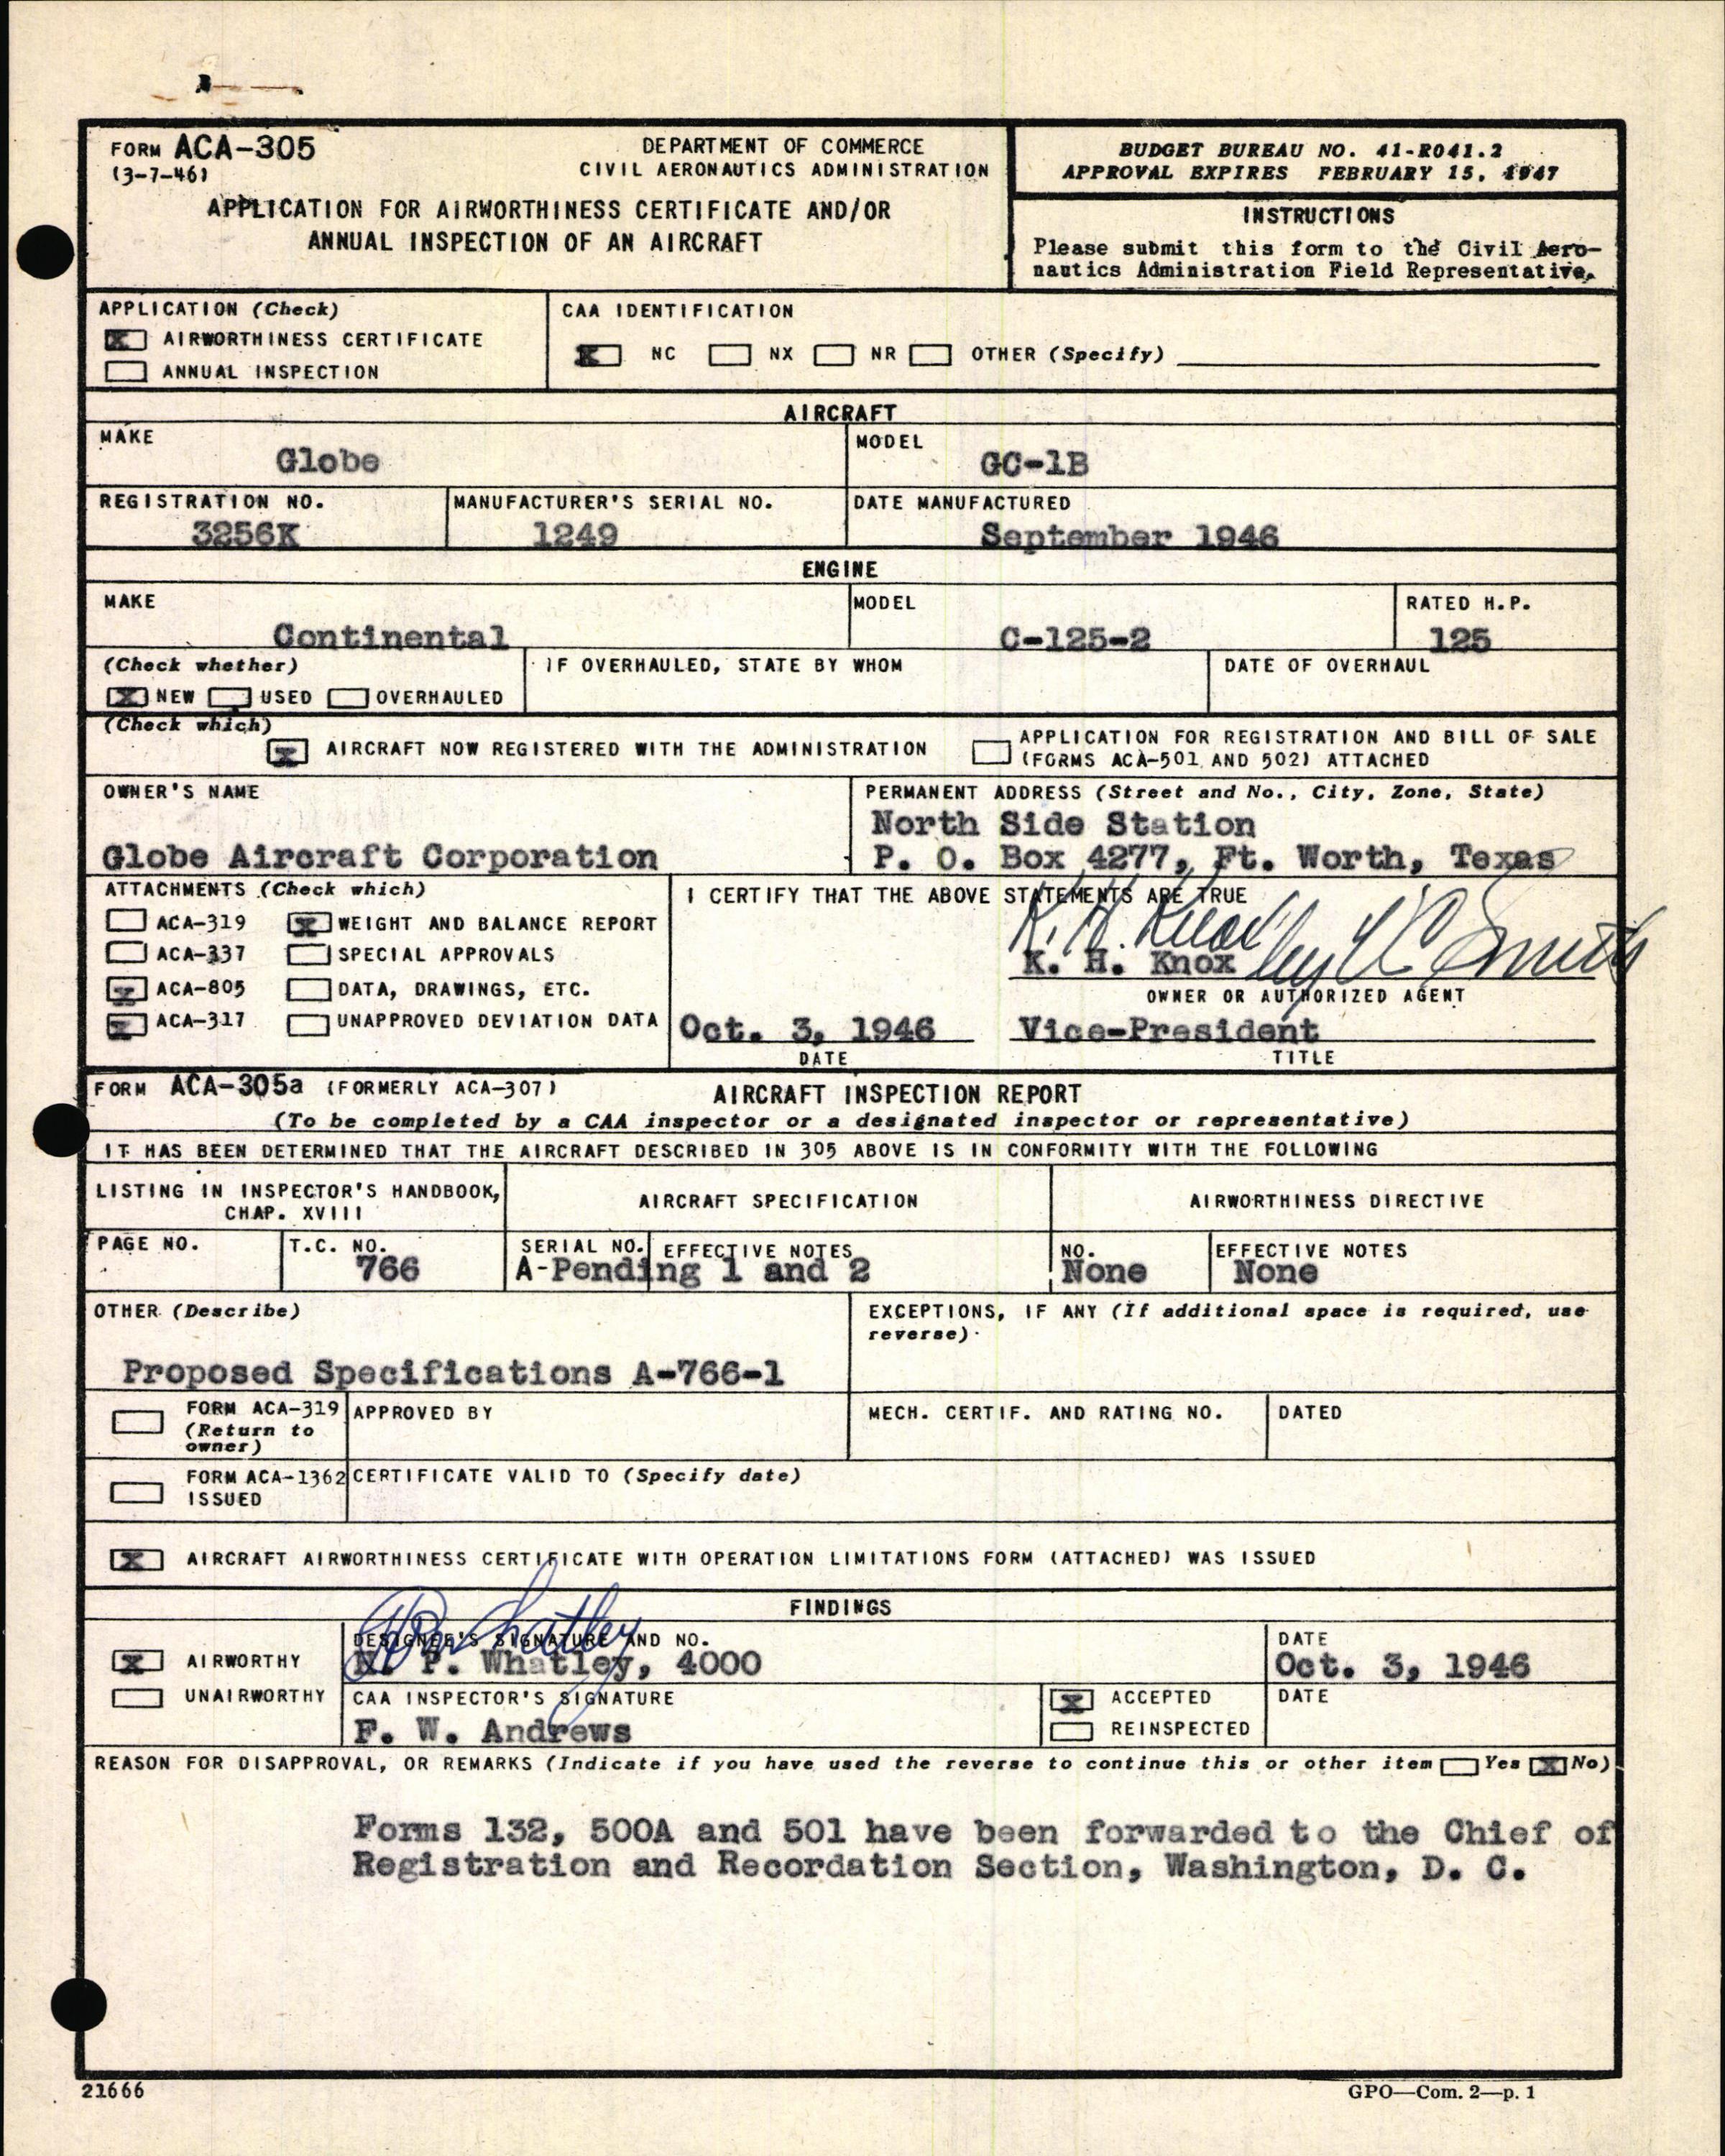 FORM ACA-305
(3-7-46)
DEPARTMENT OF COMMERCE
CIVIL AERONAUTICS ADMINISTRATION
APPLICATION FOR AIRWORTHINESS CERTIFICATE AND/OR
ANNUAL INSPECTION OF AN AIRCRAFT
BUDGET BUREAU NO. 41-R041.2
APPROVAL EXPIRES FEBRUARY 15, 1947
INSTRUCTIONS
Please submit this form to the Civil Aero-
nautics Administration Field Representative.
APPLICATION (Check)
X AIRWORTHINESS CERTIFICATE
ANNUAL INSPECTION
CAA IDENTIFICATION
X NC NX NR OTHER (Specify)
AIRCRAFT
MAKE
Globe
MODEL
GC-1B
REGISTRATION NO.
3256K
MANUFACTURER'S SERIAL NO.
1249
DATE MANUFACTURED
September 1946
ENGINE
MAKE
Continental
MODEL
C-125-2
RATED H.P.
125
(Check whether)
X NEW USED OVERHAULED
IF OVERHAULED, STATE BY WHOM
DATE OF OVERHAUL
(Check which)
X AIRCRAFT NOW REGISTERED WITH THE ADMINISTRATION
APPLICATION FOR REGISTRATION AND BILL OF SALE
(FORMS ACA-501 AND 502) ATTACHED
OWNER'S NAME
Globe Aircraft Corporation
PERMANENT ADDRESS (Street and No., City, Zone, State)
North Side Station
P. O. Box 4277, Ft. Worth, Texas
ATTACHMENTS (Check which)
ACA-319 X WEIGHT AND BALANCE REPORT
ACA-337 SPECIAL APPROVALS
X ACA-805 DATA, DRAWINGS, ETC.
X ACA-317 UNAPPROVED DEVIATION DATA
I CERTIFY THAT THE ABOVE STATEMENTS ARE TRUE
K. H. Knox by Smith
K. H. Knox
OWNER OR AUTHORIZED AGENT
Oct. 3, 1946 Vice-President
DATE TITLE
FORM ACA-305a (FORMERLY ACA-307) AIRCRAFT INSPECTION REPORT
(To be completed by a CAA inspector or a designated inspector or representative)
IT HAS BEEN DETERMINED THAT THE AIRCRAFT DESCRIBED IN 305 ABOVE IS IN CONFORMITY WITH THE FOLLOWING
LISTING IN INSPECTOR'S HANDBOOK,
CHAP. XVIII
AIRCRAFT SPECIFICATION
AIRWORTHINESS DIRECTIVE
PAGE NO.
T.C. NO.
766
SERIAL NO. EFFECTIVE NOTES
A-Pending 1 and 2
NO.
None
EFFECTIVE NOTES
None
OTHER (Describe)
Proposed Specifications A-766-1
EXCEPTIONS, IF ANY (If additional space is required, use
reverse)
FORM ACA-319
(Return to
owner)
APPROVED BY
MECH. CERTIF. AND RATING NO.
DATED
FORM ACA-1362
ISSUED
CERTIFICATE VALID TO (Specify date)
X AIRCRAFT AIRWORTHINESS CERTIFICATE WITH OPERATION LIMITATIONS FORM (ATTACHED) WAS ISSUED
FINDINGS
X AIRWORTHY
UNAIRWORTHY
DESIGNEE'S SIGNATURE AND NO.
N. P. Whatley, 4000
DATE
Oct. 3, 1946
CAA INSPECTOR'S SIGNATURE
F. W. Andrews
X ACCEPTED
REINSPECTED
DATE
REASON FOR DISAPPROVAL, OR REMARKS (Indicate if you have used the reverse to continue this or other item Yes X No)
Forms 132, 500A and 501 have been forwarded to the Chief of
Registration and Recordation Section, Washington, D. C.
21666
GPO—Com. 2—p. 1